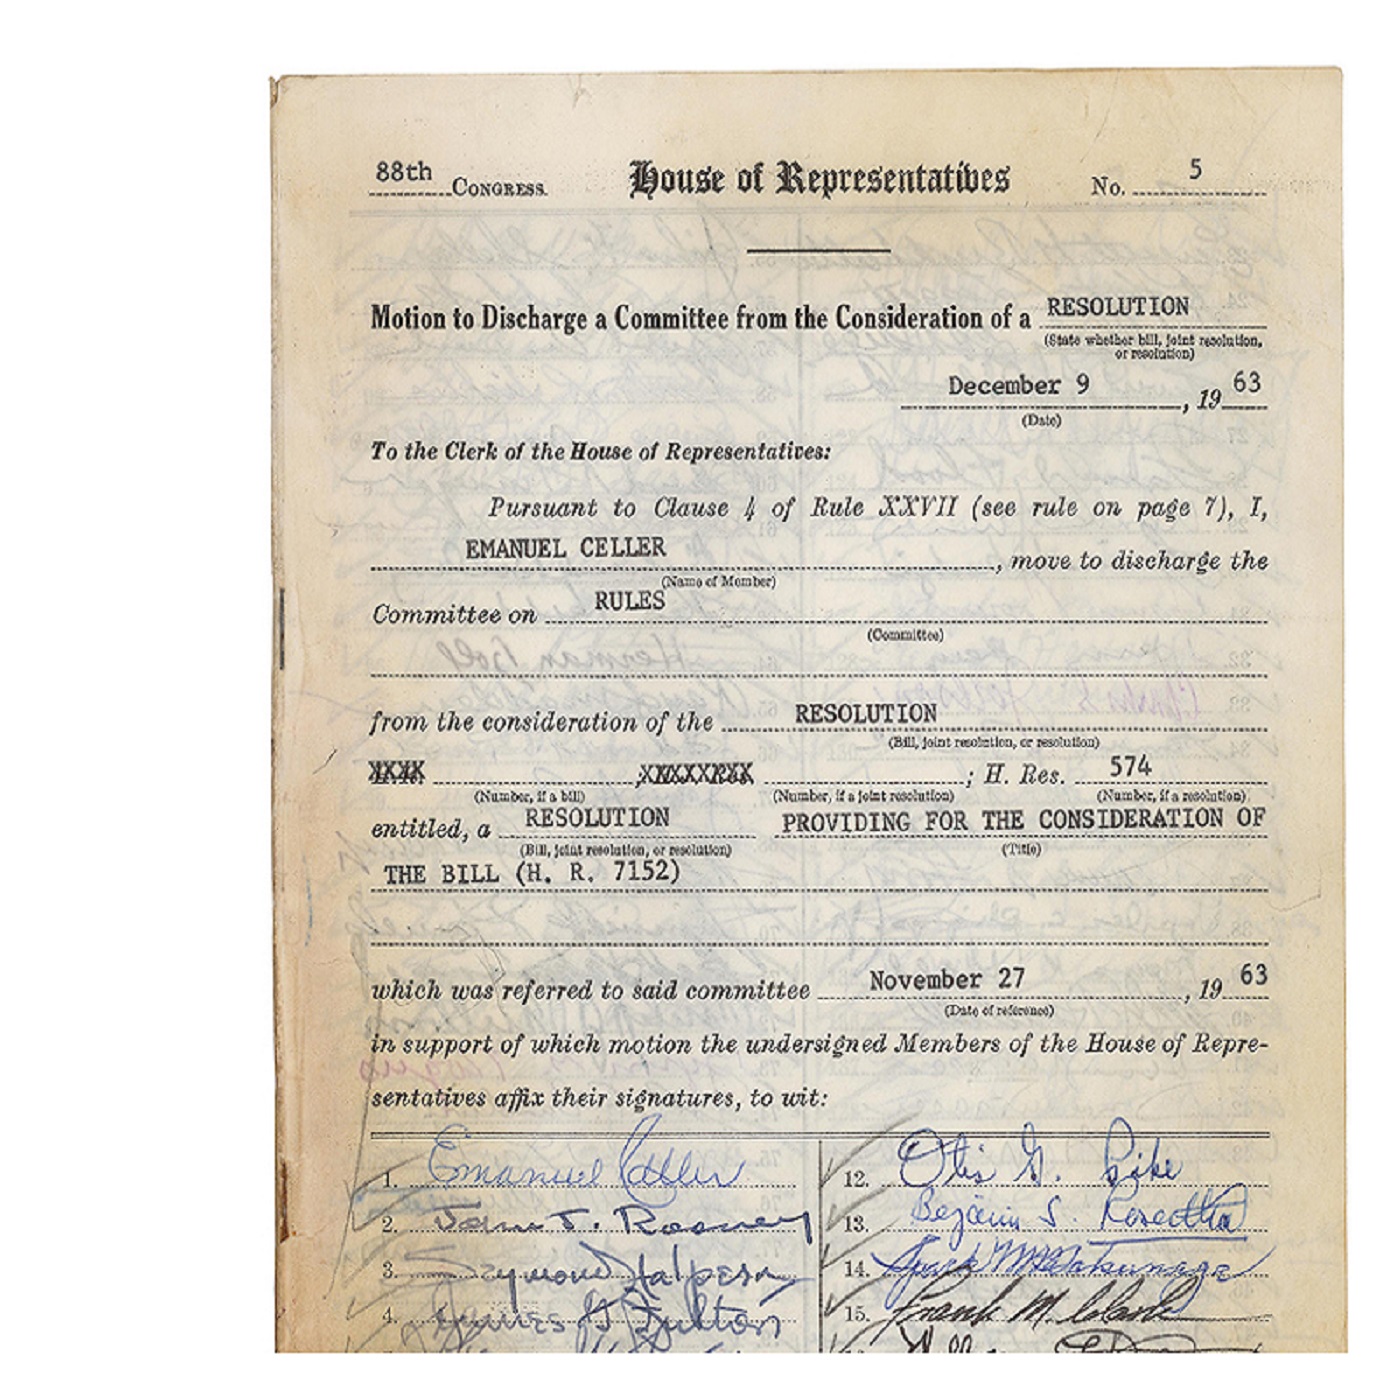 88th CONGRESS. House of Representatives No. 5
Motion to Discharge a Committee from the Consideration of a RESOLUTION
(State whether bill, joint resolution,
or resolution)
December 9, 19 63
(Date)
To the Clerk of the House of Representatives:
Pursuant to Clause 4 of Rule XXVII (see rule on page 7), I,
EMANUEL CELLER, move to discharge the
(Name of Member)
Committee on RULES
(Committee)
from the consideration of the RESOLUTION
(Bill, joint resolution, or resolution)
XXXX ,XXXXXXXX ; H. Res. 574
(Number, if a bill) (Number, if a joint resolution) (Number, if a resolution)
entitled, a RESOLUTION PROVIDING FOR THE CONSIDERATION OF
(Bill, joint resolution, or resolution) (Title)
THE BILL (H. R. 7152)
which was referred to said committee November 27, 19 63
(Date of reference)
in support of which motion the undersigned Members of the House of Repre-
sentatives affix their signatures, to wit:
1. Emanuel Celler
2. John J. Rooney
3. Seymour Halpern
4. James G Fulton
12. Otis G. Pike
13. Benjamin S. Rosenthal
14. Spark M. Matsunaga
15. Frank M. Clark